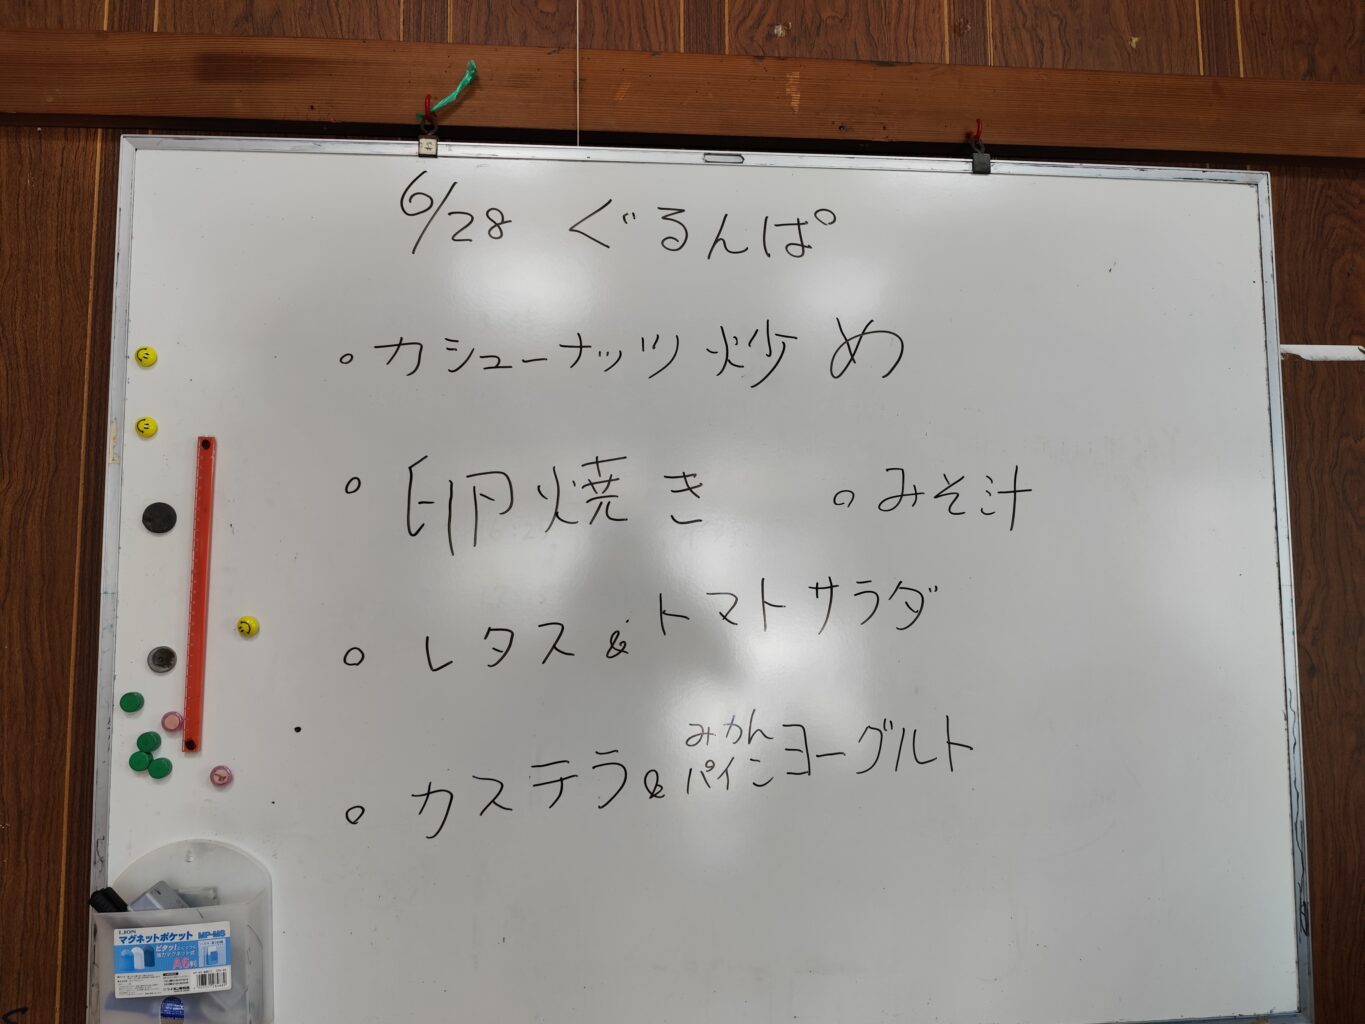 6/28 ぐるんぱ
○カシューナッツ炒め
○卵焼き ○みそ汁
○レタス&トマトサラダ
○カステラ&みかんパインヨーグルト
LION
マグネットポケット MP-MS
ピタッ!
強力マグネット式